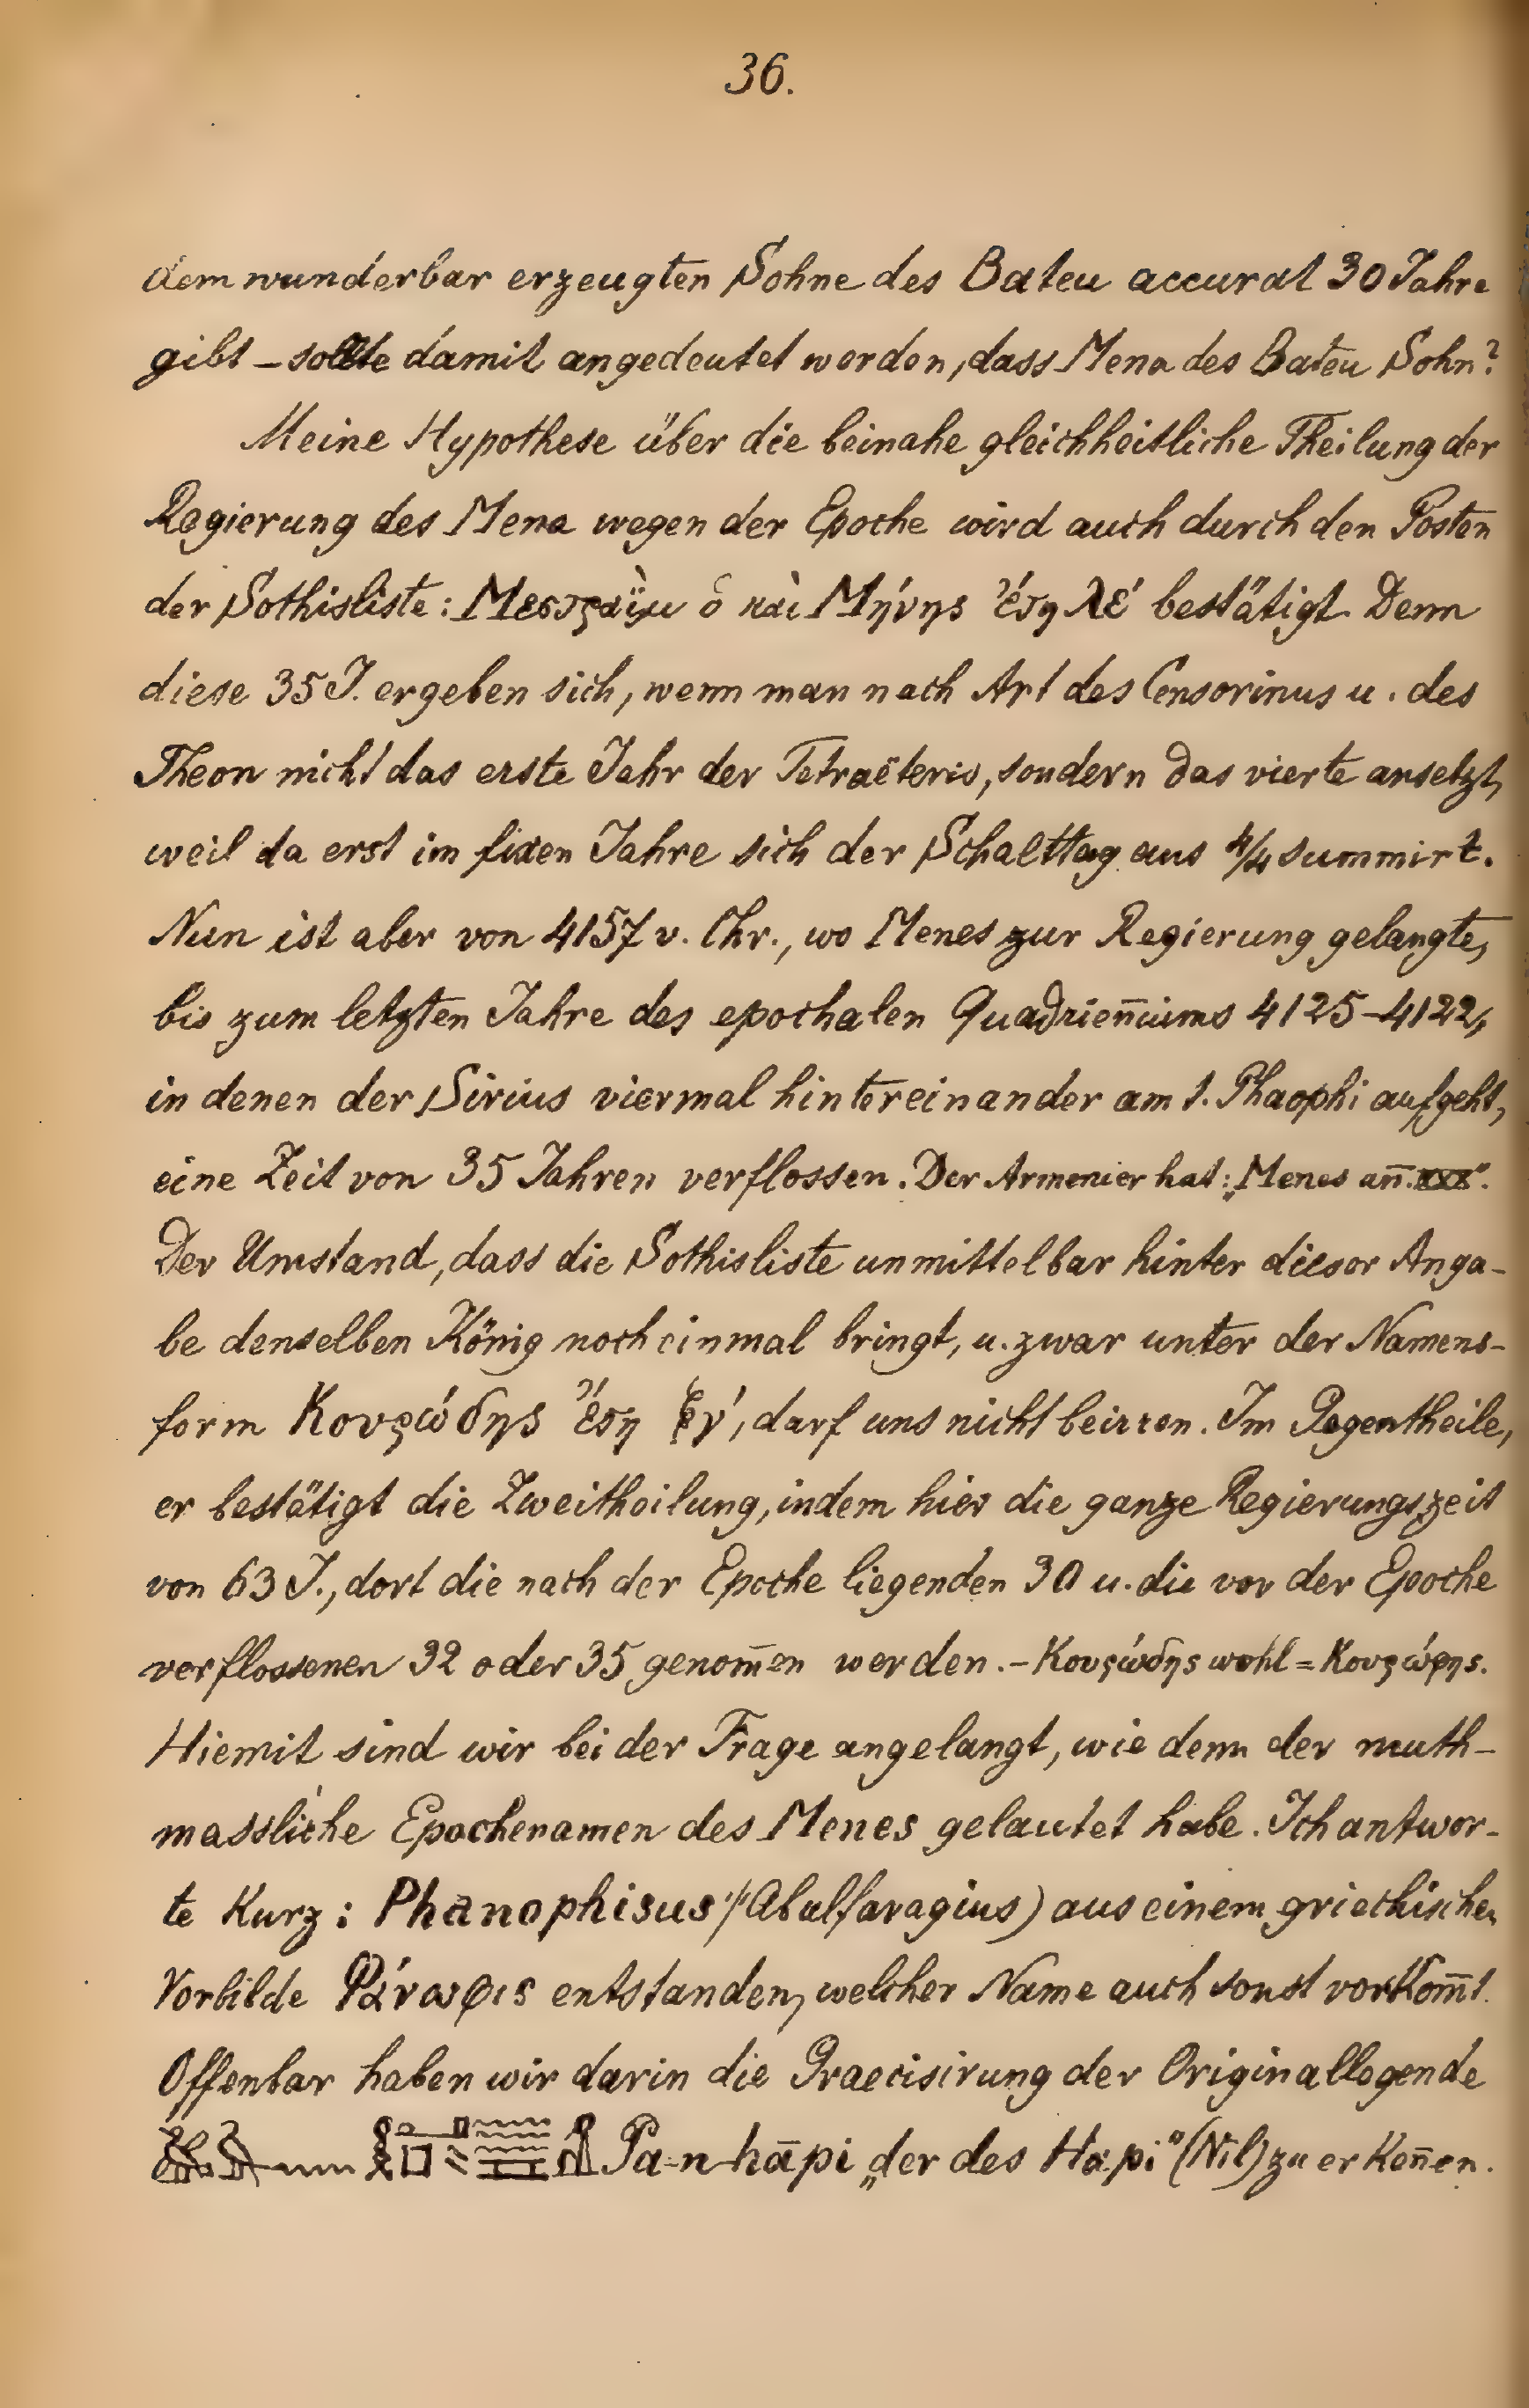 36.
dem wunderbar erzeugten Sohne des Bateu accurat 30 Jahre
gibt – sollte damit angedeutet werden, dass Mena des Bateu Sohn?
Meine Hypothese über die beinahe gleichheitliche Theilung der
Regierung des Mena wegen der Epoche wird auch durch den Posten
der Sothisliste: Μεστραὶμ ὁ καὶ Μήνης ἔτη λέ bestätigt. Denn
diese 35 J. ergeben sich, wenn man nach Art des Censorinus u. des
Theon nicht das erste Jahr der Tetraëteris, sondern das vierte ansetzt,
weil da erst im fixen Jahre sich der Schalttag aus 4/4 summirt.
Nun ist aber von 4157 v. Chr., wo Menes zur Regierung gelangte,
bis zum letzten Jahre des epochalen Quadrien̄iums 4125–4122,
in denen der Sirius viermal hintereinander am 1. Phaophi aufgeht,
eine Zeit von 35 Jahren verflossen. Der Armenier hat: „Menes an̄. xxx".
Der Umstand, dass die Sothisliste unmittelbar hinter dieser Anga-
be denselben König noch einmal bringt, u. zwar unter der Namens-
form Κουρώδης ἔτη ξγ́, darf uns nicht beirren. Im Gegentheile,
er bestätigt die Zweitheilung, indem hier die ganze Regierungszeit
von 63 J., dort die nach der Epoche liegenden 30 u. die vor der Epoche
verflossenen 32 oder 35 genom̄en werden. – Κουρώδης wohl = Κουρώφης.
Hiemit sind wir bei der Frage angelangt, wie denn der muth-
massliche Epochename des Menes gelautet habe. Ich antwor-
te kurz: Phanophisus (Abulfaragius) aus einem griechischen
Vorbilde Φάνωφις entstanden, welcher Name auch sonst vorkom̄t.
Offenbar haben wir darin die Praecisirung der Originallegende
Pa-n-hāpi „der des Hapi" (Nil) zu erken̄en.